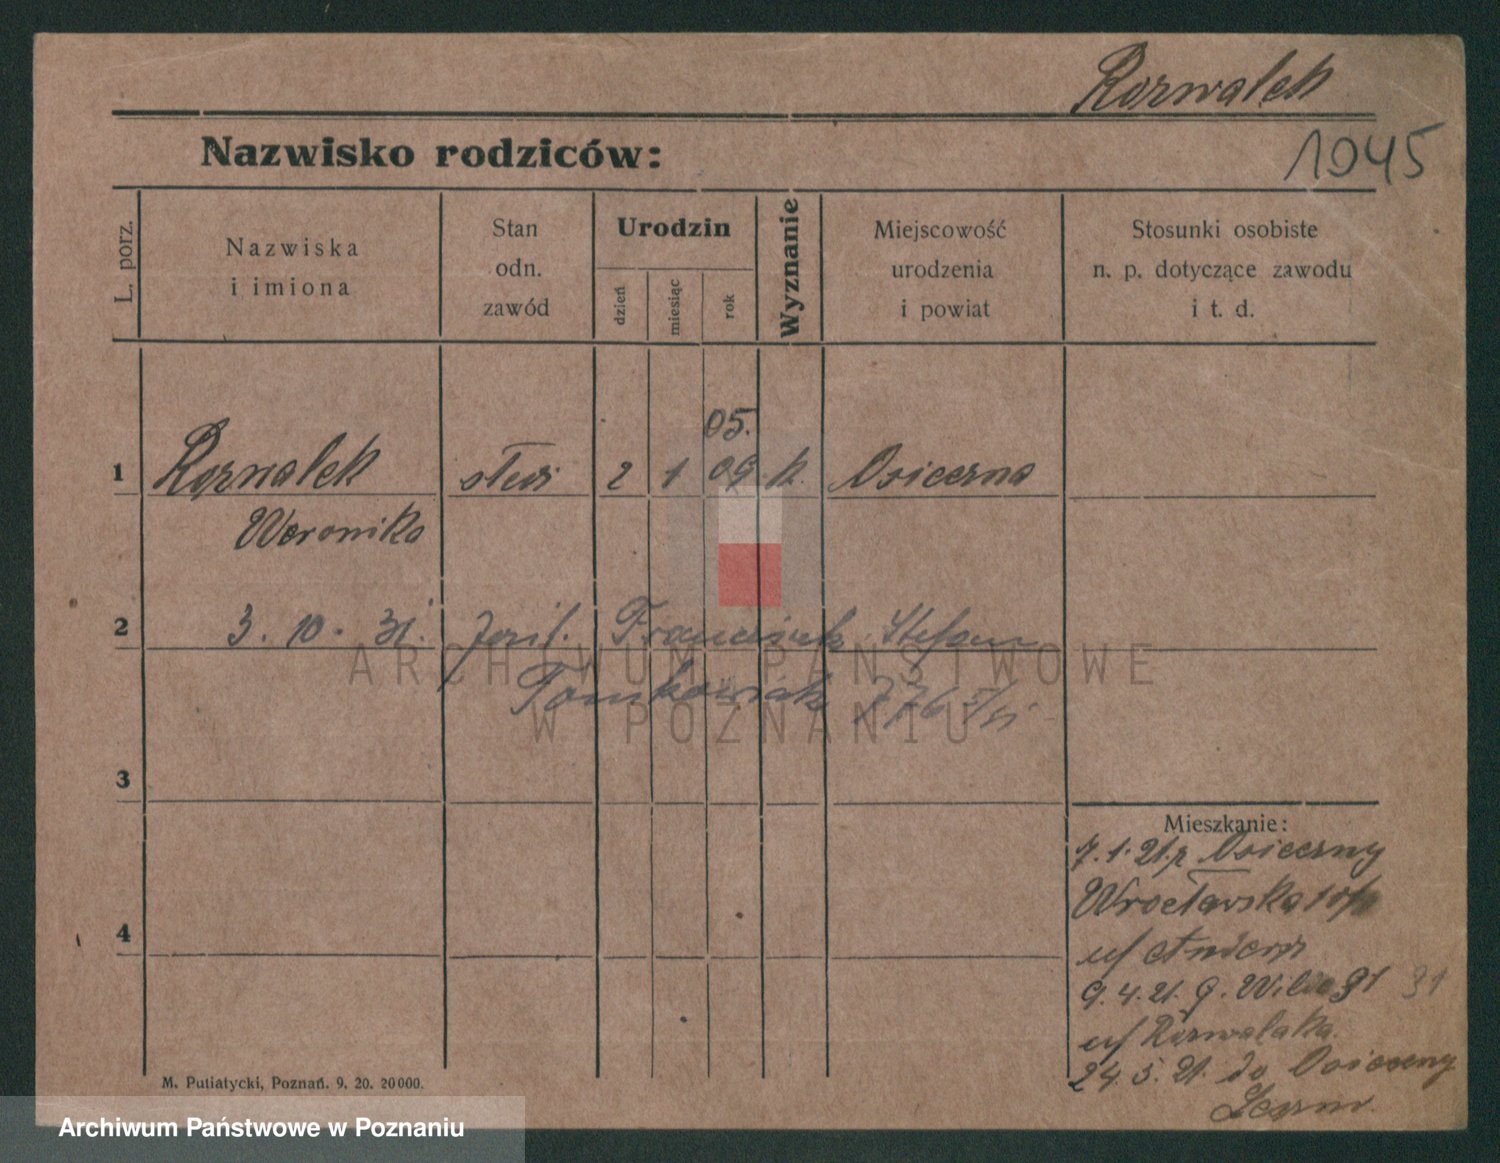 Rozwalek
Nazwisko rodziców:
1045
L. porz.
Nazwiska
i imiona
Stan
odn.
zawód
Urodzin
dzień
miesiąc
rok
Wyznanie
Miejscowość
urodzenia
i powiat
Stosunki osobiste
n. p. dotyczące zawodu
i t. d.
05.
1 Rozwalek służ 2 1 09 k. Osieczna
Weronika
2 3. 10. 31. Franciszek Stefan
Tomkowiak 776
3
Mieszkanie:
7.1.21. z Osieczny
Wrocławska
4
u/
9.4.21. G. Wilda 91 91
u/ Rozwalaka
24.5.21. do Osieczny
M. Putiatycki, Poznań. 9. 20. 20000.
ARCHIWUM PAŃSTWOWE
W POZNANIU
Archiwum Państwowe w Poznaniu